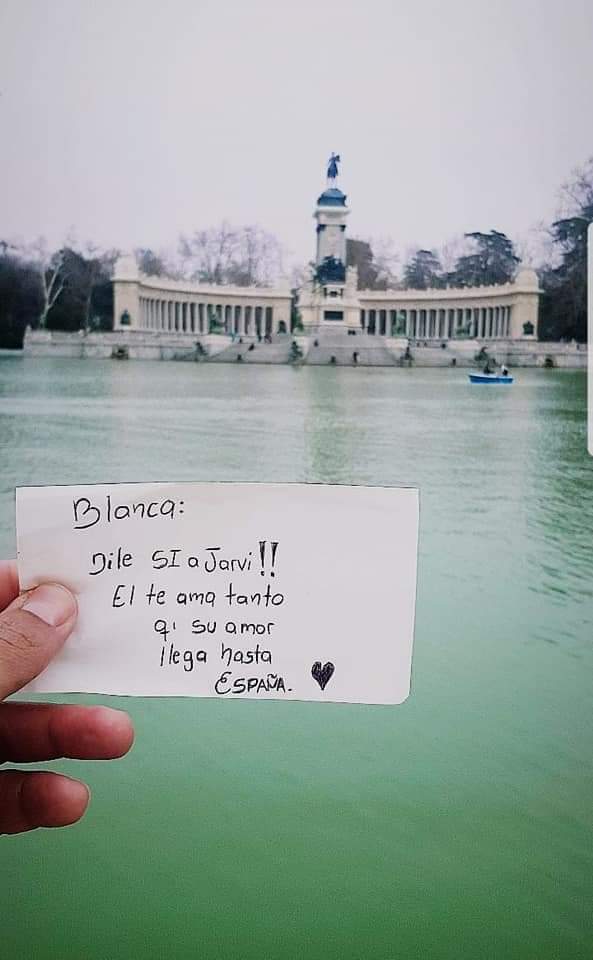 Blanca:
Dile SI a Jarvi!!
El te ama tanto
q' su amor
llega hasta
ESPAÑA.